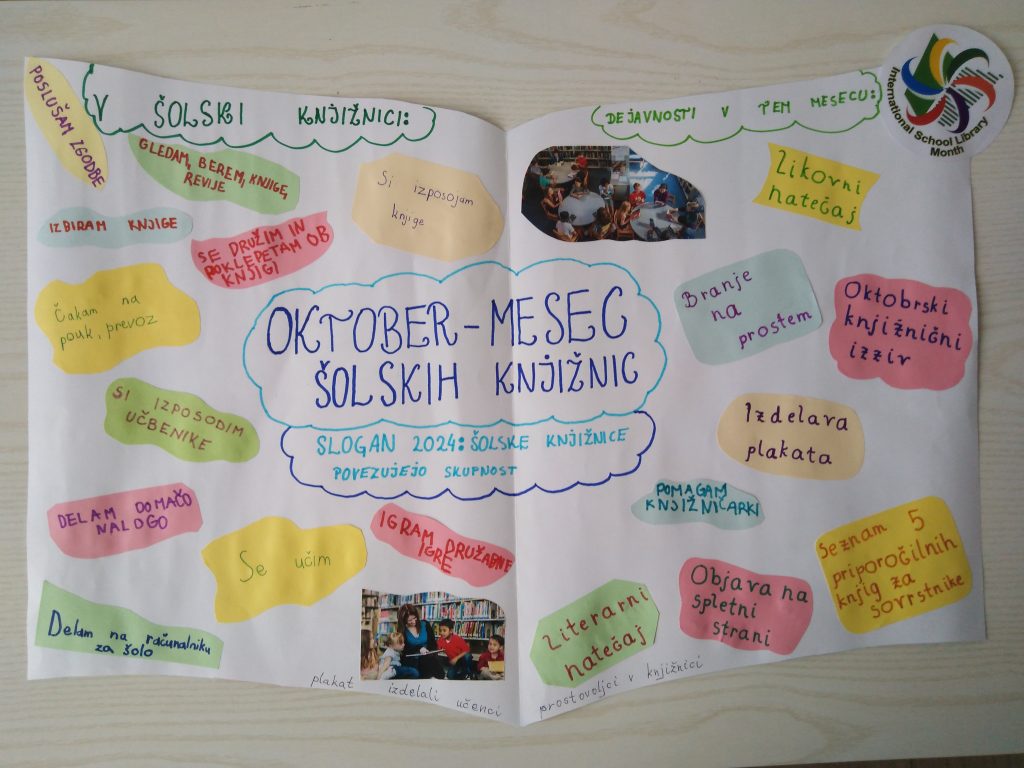 V ŠOLSKI KNJIŽNICI:
POSLUŠAM ZGODBE
GLEDAM, BEREM, KNJIGE,
REVIJE
Si izposojam
knjige
IZBIRAM KNJIGE
SE DRUŽIM IN
POKLEPETAM OB
KNJIGI
Čakam na
pouk, prevoz
SI IZPOSODIM
UČBENIKE
DELAM DOMAČO
NALOGO
Se učim
IGRAM DRUŽABNE
IGRE
Delam na računalniku
za šolo
OKTOBER-MESEC
ŠOLSKIH KNJIŽNIC
SLOGAN 2024: ŠOLSKE KNJIŽNICE
POVEZUJEJO SKUPNOST
DEJAVNOSTI V TEM MESECU:
International School Library
Month
Likovni
natečaj
Branje
na
prostem
Oktobrski
knjižnični
izziv
Izdelava
plakata
POMAGAM
KNJIŽNIČARKI
Seznam 5
priporočilnih
knjig za
sovrstnike
Objava na
spletni
strani
Literarni
natečaj
plakat izdelali učenci
prostovoljci v knjižnici